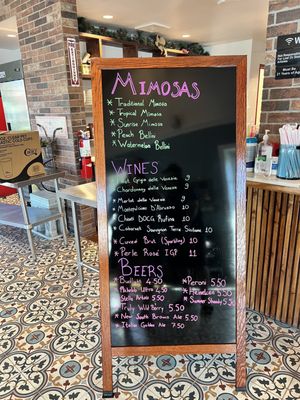 MIMOSAS
* Traditional Mimosa
* Tropical Mimosa
* Sunrise Mimosa
* Peach Bellini
* Watermelon Bellini
WINES
* Pinot Grigio delle Venezie 9
* Chardonnay delle Venezie 9
* Merlot delle Venezie 9
* Montepulciano D'Abruzzo 10
* Chianti DOCG 10
* Cabernet Sauvignon Terre Siciliane 10
* Cuvee Brut (Sparkling) 10
* Perle Rosé IGP 11
BEERS
* Budlight 4.50
* Peroni 5.50
* Michelob Ultra 4.50
* Heineken 5.50
* Stella Artois 5.50
* Summer Shandy 5.50
* Truly Wild Berry 5.50
* New South Brown Ale 5.50
* Italian Golden Ale 7.50